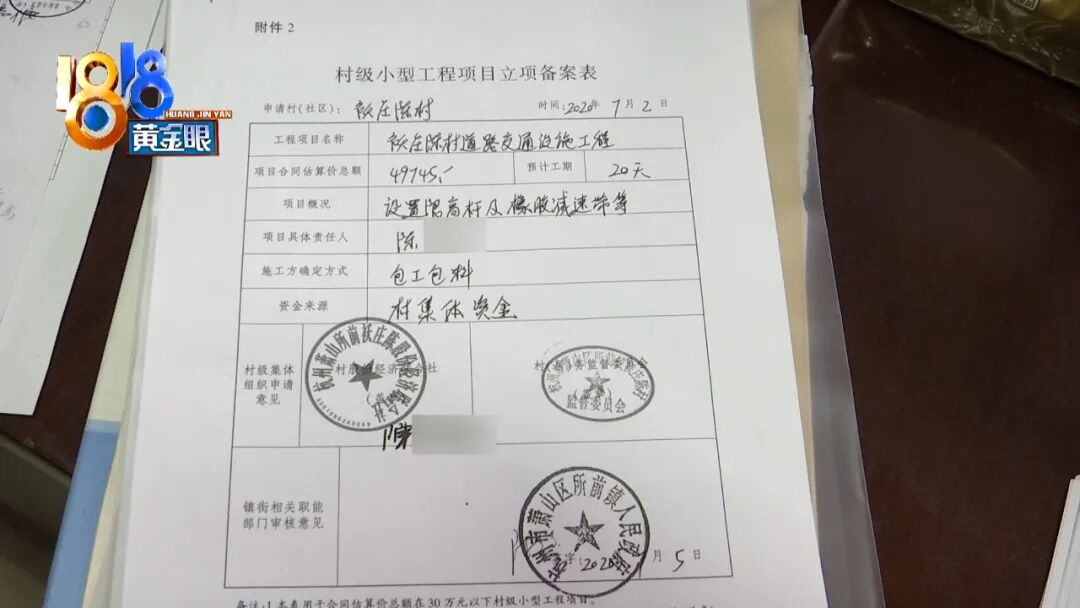 1818
HUANG JIN YAN
黄金眼
附件 2
村级小型工程项目立项备案表
申请村(社区): 祆庄陈村 时间:2020年7月2日
工程项目名称 祆庄陈村道路交通设施工程
项目合同估算价总额 49745.- 预计工期 20天
项目概况 设置限高杆及橡胶减速带等
项目具体责任人 陈
施工方确定方式 包工包料
资金来源 村集体资金
村级集体
组织申请
意见
杭州萧山所前祆庄陈股份经济联合社
监督委员会
陈
镇街相关职能
部门审核意见
杭州市萧山区所前镇人民政府
签字: 2020 月5日
备注:1.本表用于合同估算价总额在30万元以下村级小型工程项目。